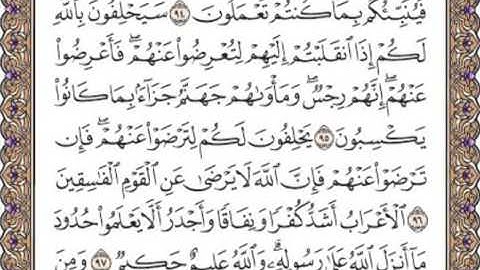 فَيُنَبِّئُكُم بِمَا كُنتُمْ تَعْمَلُونَ ٩٤ سَيَحْلِفُونَ بِٱللَّهِ
لَكُمْ إِذَا ٱنقَلَبْتُمْ إِلَيْهِمْ لِتُعْرِضُوا۟ عَنْهُمْ ۖ فَأَعْرِضُوا۟
عَنْهُمْ ۖ إِنَّهُمْ رِجْسٌ ۖ وَمَأْوَىٰهُمْ جَهَنَّمُ جَزَآءًۢ بِمَا كَانُوا۟
يَكْسِبُونَ ٩٥ يَحْلِفُونَ لَكُمْ لِتَرْضَوْا۟ عَنْهُمْ ۖ فَإِن
تَرْضَوْا۟ عَنْهُمْ فَإِنَّ ٱللَّهَ لَا يَرْضَىٰ عَنِ ٱلْقَوْمِ ٱلْفَـٰسِقِينَ
٩٦ ٱلْأَعْرَابُ أَشَدُّ كُفْرًا وَنِفَاقًا وَأَجْدَرُ أَلَّا يَعْلَمُوا۟ حُدُودَ
مَآ أَنزَلَ ٱللَّهُ عَلَىٰ رَسُولِهِۦ ۗ وَٱللَّهُ عَلِيمٌ حَكِيمٌ ٩٧ وَمِنَ